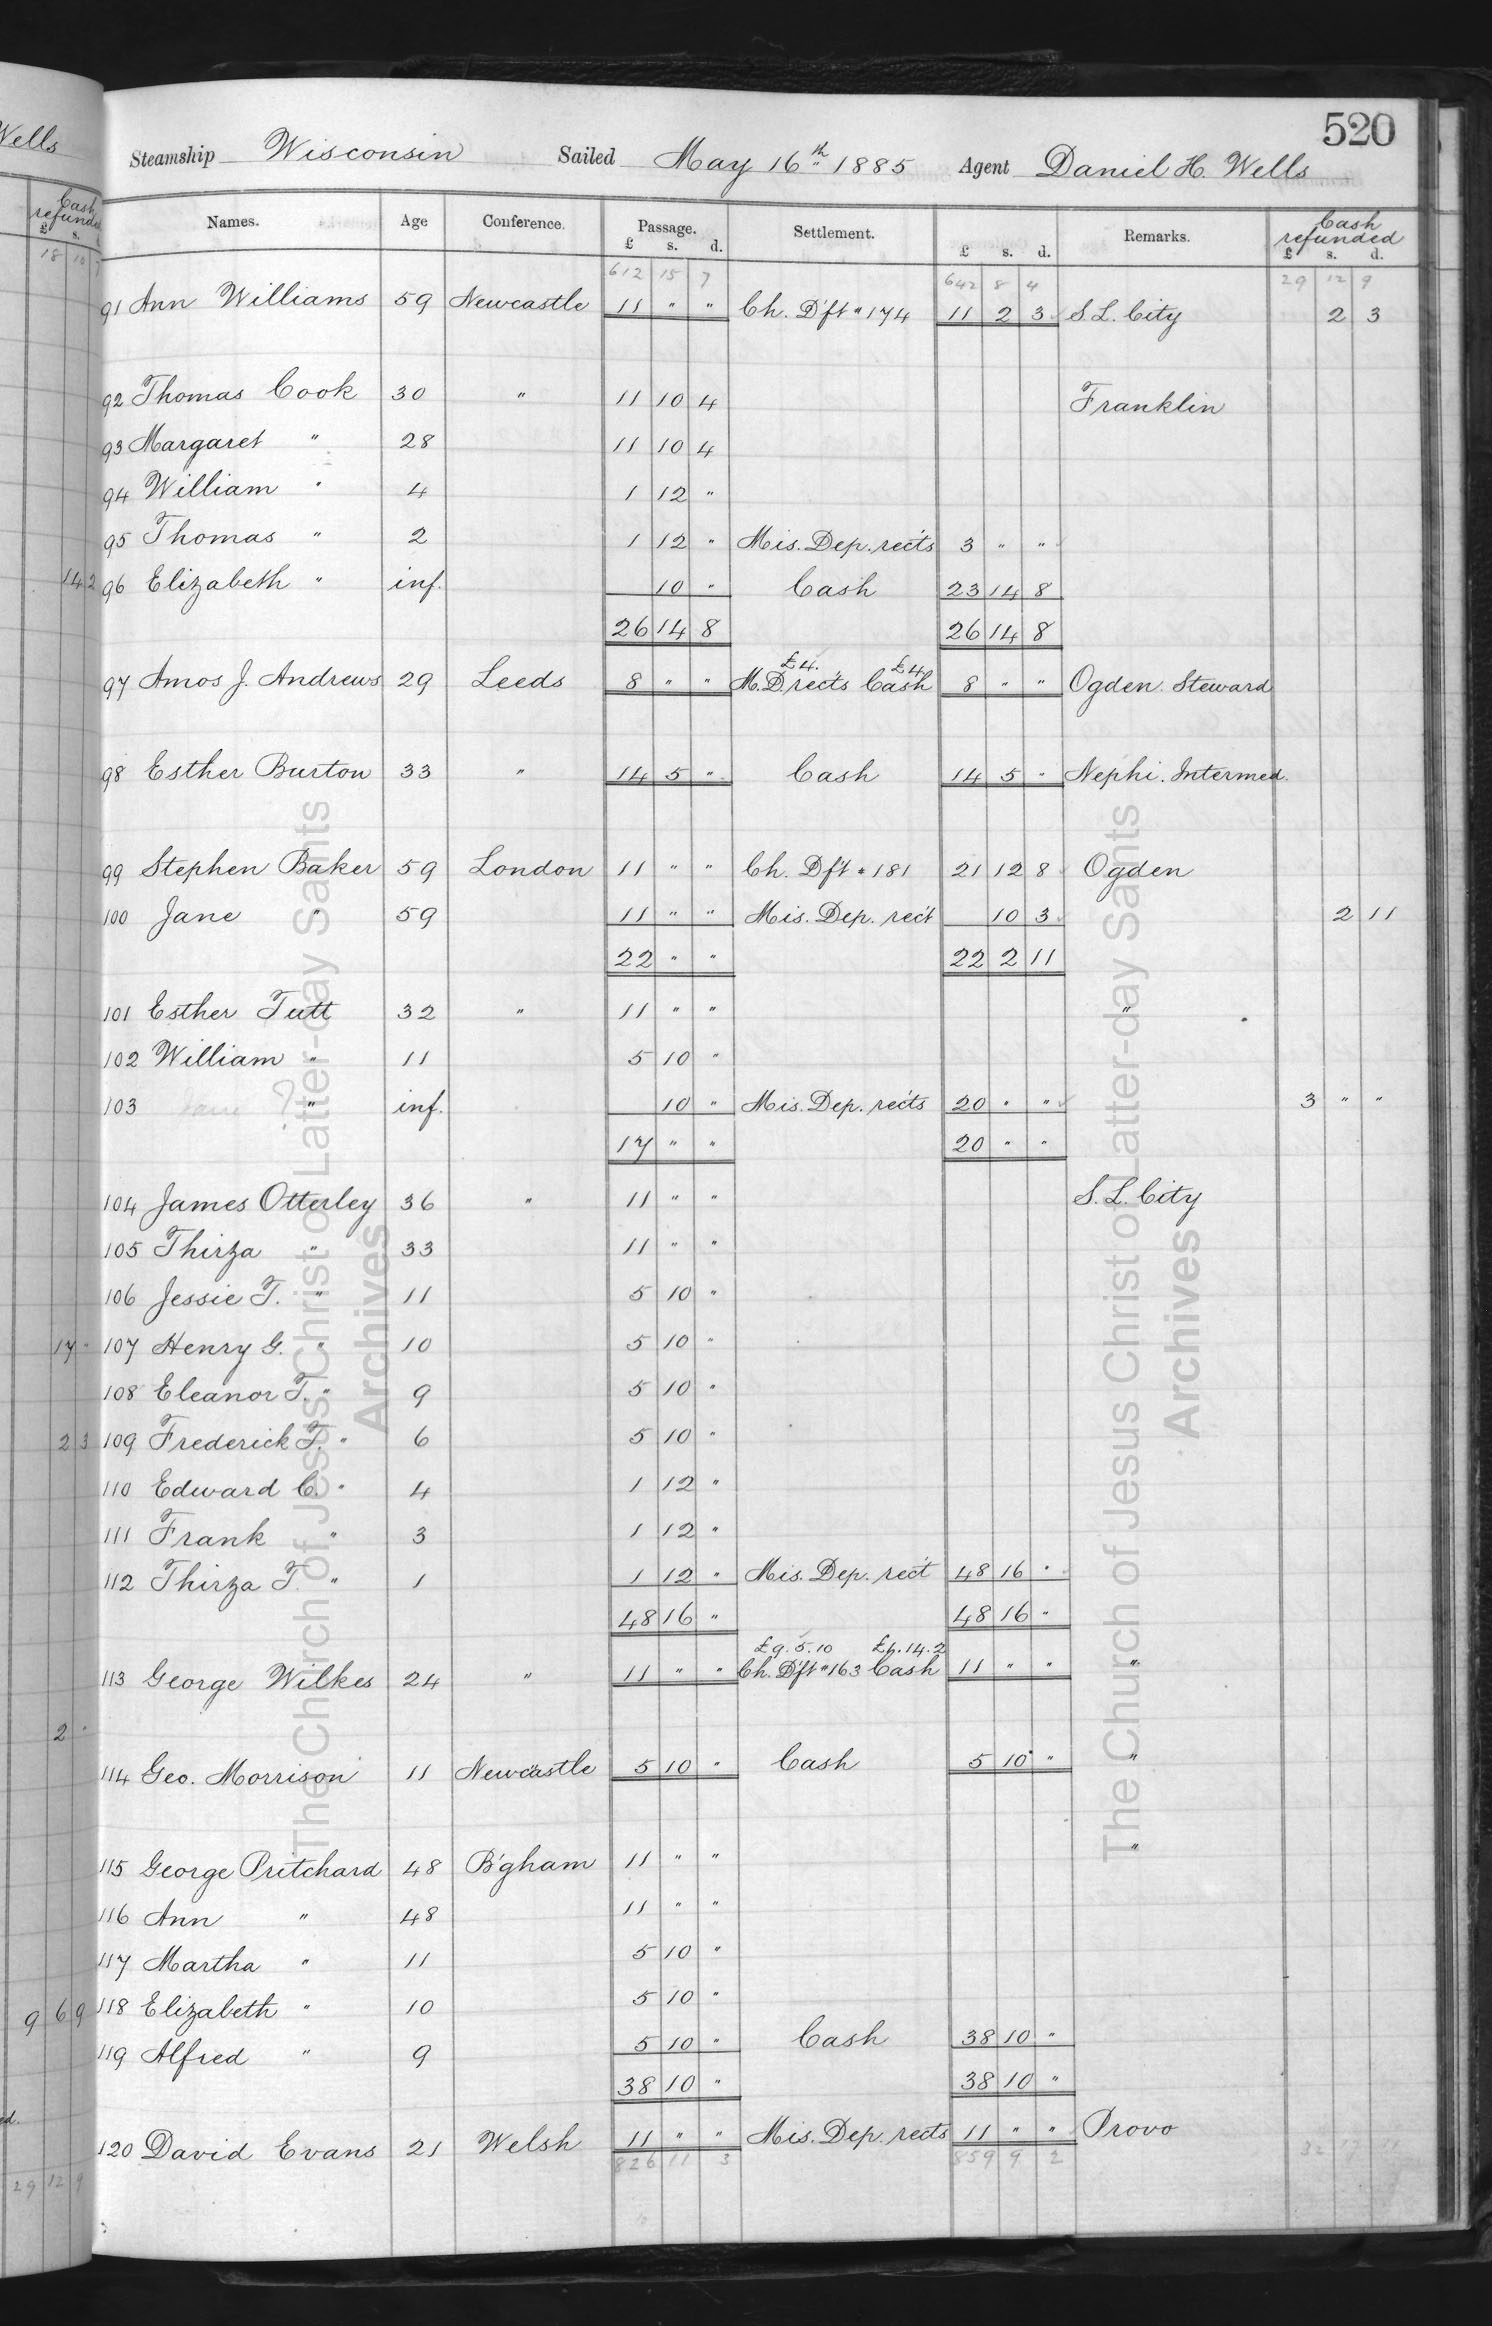 520
Steamship Wisconsin Sailed May 16th 1885 Agent Daniel H. Wells
Names. Age Conference. Passage. Settlement. Remarks. Cash refunded
£ s. d. £ s. d. £ s. d.
612 15 7 642 8 4 29 12 9
91 Ann Williams 59 Newcastle 11 " " Ch. D'ft " 174 11 2 3 S. L. City 2 3
92 Thomas Cook 30 " 11 10 4 Franklin
93 Margaret " 28 11 10 4
94 William " 4 1 12 "
95 Thomas " 2 1 12 " Mis. Dep. rects 3 " "
96 Elizabeth " inf. 10 " Cash 23 14 8
26 14 8 26 14 8
£4. £4
97 Amos J. Andrews 29 Leeds 8 " " M.D. rects Cash 8 " " Ogden. Steward
98 Esther Burton 33 " 14 5 " Cash 14 5 " Nephi. Intermed.
99 Stephen Baker 59 London 11 " " Ch. Dft " 181 21 12 8 Ogden
100 Jane " 59 11 " " Mis. Dep. rect 10 3 2 11
22 " " 22 2 11
101 Esther Tutt 32 " 11 " " "
102 William " 11 5 10 "
103 " inf. 10 " Mis. Dep. rects 20 " " 3 " "
17 " " 20 " "
104 James Otterley 36 " 11 " " S. L. City
105 Thirza " 33 11 " "
106 Jessie T. " 11 5 10 "
107 Henry G. " 10 5 10 "
108 Eleanor T. " 9 5 10 "
109 Frederick T. " 6 5 10 "
110 Edward C. " 4 1 12 "
111 Frank " 3 1 12 "
112 Thirza T. " 1 1 12 " Mis. Dep. rect 48 16 "
48 16 " 48 16 "
£9.5.10 £1.14.2
113 George Wilkes 24 " 11 " " Ch. D'ft " 163 Cash 11 " " "
114 Geo. Morrison 11 Newcastle 5 10 " Cash 5 10 " "
115 George Pritchard 48 B'gham 11 " " "
116 Ann " 48 11 " "
117 Martha " 11 5 10 "
118 Elizabeth " 10 5 10 "
119 Alfred " 9 5 10 " Cash 38 10 "
38 10 " 38 10 "
120 David Evans 21 Welsh 11 " " Mis. Dep. rects 11 " " Provo
826 11 3 859 9 2 32 17 11
Wells
Cash refunded
£ s.
18 10 7
14 2
17 "
2 3
2 "
9 6 9
29 12 9
The Church of Jesus Christ of Latter-day Saints
Archives
The Church of Jesus Christ of Latter-day Saints
Archives